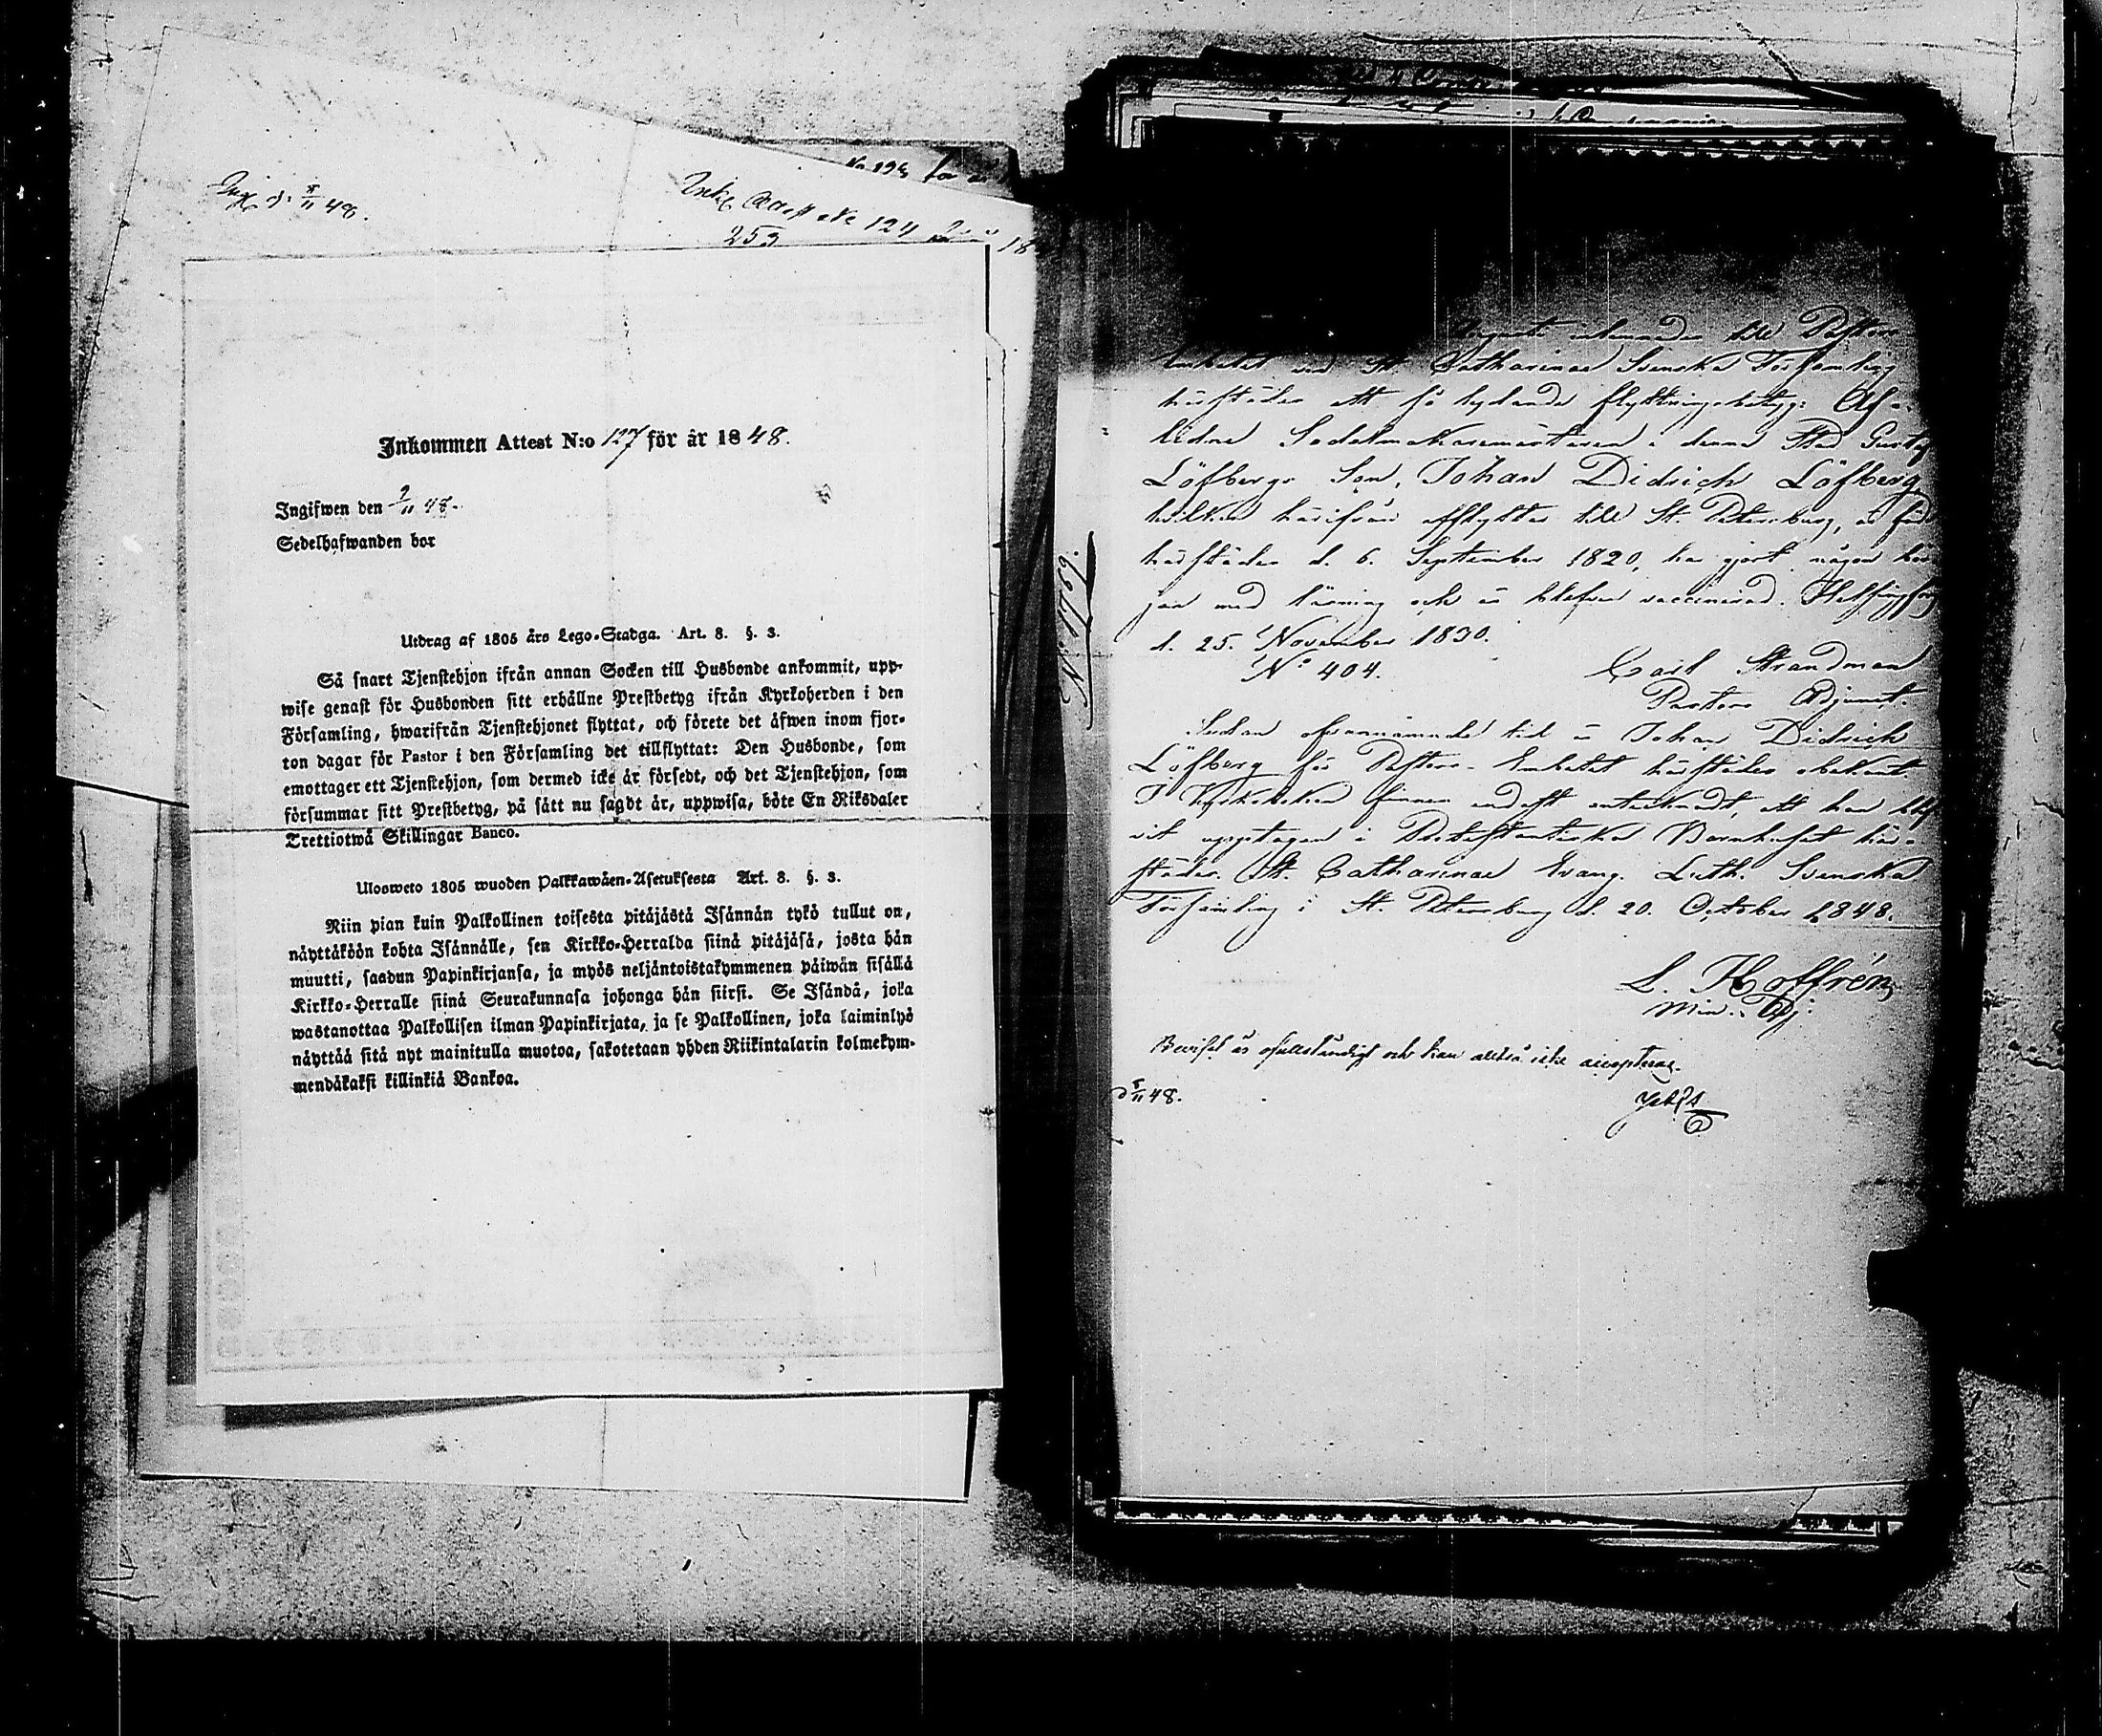 d. 5/11 48.
No 124
253
Inkommen Attest N:o 127 för år 1848.
Ingifwen den 9/11 48.
Sedelhafwanden bor
Utdrag af 1805 års Lego-Stadga. Art. 8. §. 3.
Så snart Tjenstehjon ifrån annan Socken till Husbonde ankommit, upp-
wise genast för Husbonden sitt erhållne Prestbetyg ifrån Kyrkoherden i den
Församling, hwarifrån Tjenstehjonet flyttat, och förete det äfwen inom fjor-
ton dagar för Pastor i den Församling det tillflyttat: Den Husbonde, som
emottager ett Tjenstehjon, som dermed icke är försedt, och det Tjenstehjon, som
försummar sitt Prestbetyg, på sätt nu sagdt är, uppwisa, böte En Riksdaler
Trettiotwå Skillingar Banco.
Ulosweto 1805 wuoden Palkkawäen-Asetuksesta Art. 8. §. 3.
Niin pian kuin Palkollinen toisesta pitäjästä Isännän tykö tullut on,
näyttäköön kohta Isännälle, sen Kirkko-Herralda siinä pitäjäsä, josta hän
muutti, saadun Papinkirjansa, ja myös neljäntoistakymmenen päiwän sisällä
Kirkko-Herralle siinä Seurakunnasa johonga hän siirsi. Se Isändä, joka
wastanottaa Palkollisen ilman Papinkirjata, ja se Palkollinen, joka laiminlyö
näyttää sitä nyt mainitulla muotoa, sakotetaan yhden Riikintalarin kolmekym-
mendäkaksi killinkiä Bankoa.
No 1769.
till Pastors
Embetet vid St. Catharinae Svenska Församling
härstädes ett så lydande flyttningsbetyg: Af-
lidne Sadelmakaremästaren i denna Stad Gustaf
Löfbergs Son, Johan Didrich Löfberg,
hvilken härifrån afflyttar till St. Petersburg, är född
härstädes d. 6. September 1820, har gjort någon bör-
jan med läsning och är blefven vaccinerad. Helsingfors
d. 25. November 1830.
No 404.
Carl Strandman
Pastors Adjunct.
Sedan ofvannämnde tid är Johan Didrich
Löfberg för Pastors-Embetet härstädes obekant.
I Kyrkoboken finnes endast antecknadt, att han blif-
vit upptagen i Protestantiska Barnhuset här-
städes. St. Catharinae Evang. Luth. Svenska
Församling i St. Petersburg d. 20. October 1848.
L. Hoffrén
Min. Adj.
Beviset är ofullständigt och kan alltså icke accepteras.
d 5/11 48.